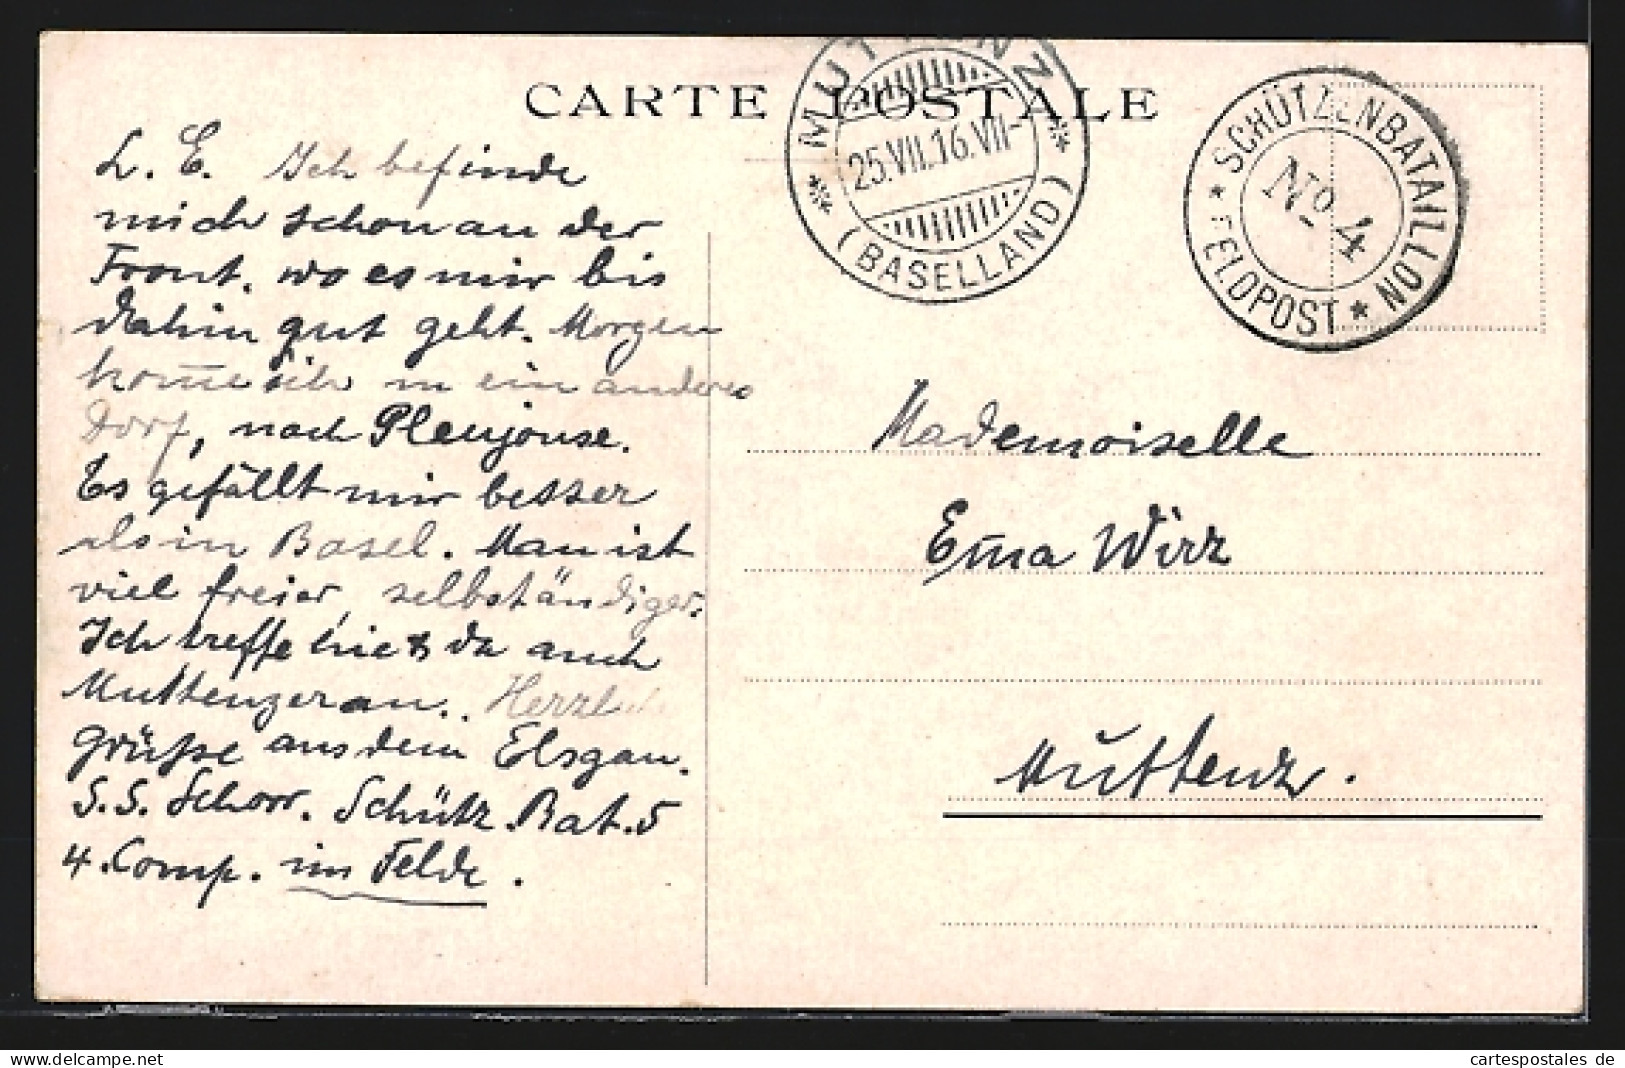 CARTE POSTALE
MUTTENZ
25.VII.16.VII-
(BASELLAND)
SCHÜTZENBATAILLON
No 4
* FELDPOST *
L. E. Ich befinde
mich schon an der
Front, wo es mir bis
dahin gut geht. Morgen
kom̅e ich in ein anderes
Dorf, nach Pleujouse.
Es gefällt mir besser
als in Basel. Man ist
viel freier, selbständiger.
Ich treffe hie & da auch
Muttenzer an. Herzl
Grüsse aus dem Elsgau.
S. S. Schorr. Schütz. Bat. 5
4. Comp. im Felde.
Mademoiselle
Em̅a Wirz
Muttenz.
cartespostales de